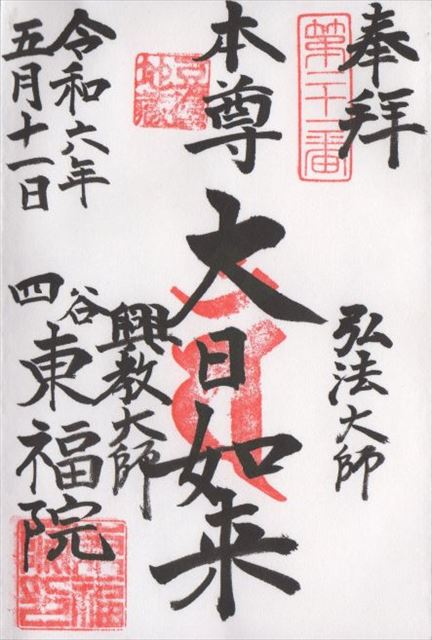 奉拝
第二十一番
弘法大師
本尊 大日如来
豆腐地蔵
興教大師
令和六年
五月十一日
四谷 東福院